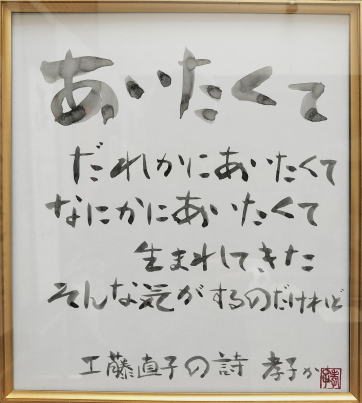 あいたくて
だれかにあいたくて
なにかにあいたくて
生まれてきた
そんな気がするのだけれど
工藤直子の詩 孝子か